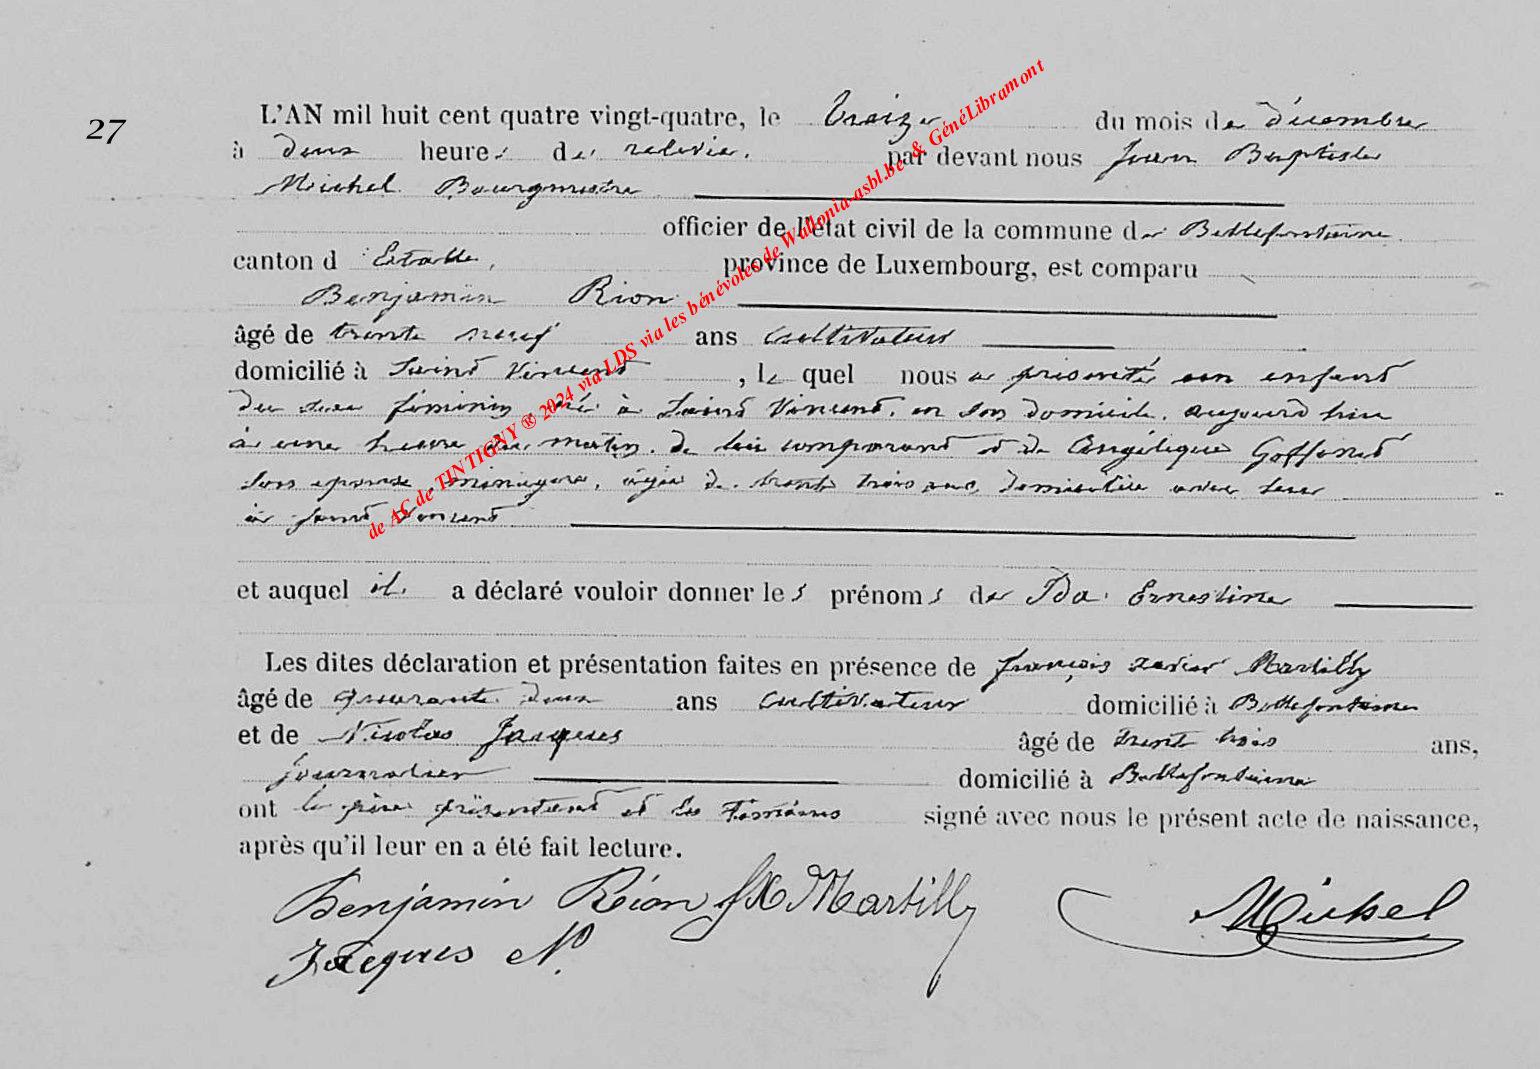 27
L'AN mil huit cent quatre vingt-quatre, le treize du mois de décembre
à deux heures de relevée. par devant nous Jean Baptiste
Michel Bourgmestre
officier de l'état civil de la commune de Bellefontaine
canton d'Etalle, province de Luxembourg, est comparu
Benjamin Rion
âgé de trente neuf ans cultivateur
domicilié à Saint Vincent, le quel nous a présenté un enfant
du sexe féminin, né à Saint Vincent, en son domicile, aujourd'hui
à une heure du matin, de lui comparant et de Angélique Goffinet
son épouse, ménagère, âgée de trente trois ans, domiciliée avec lui
à Saint Vincent
et auquel il a déclaré vouloir donner les prénoms de Ida Ernestine
Les dites déclaration et présentation faites en présence de François Xavier Martilly
âgé de quarante deux ans cultivateur domicilié à Bellefontaine
et de Nicolas Jacques âgé de trente trois ans,
journalier domicilié à Bellefontaine
ont le père présentant et les témoins signé avec nous le présent acte de naissance,
après qu'il leur en a été fait lecture.
Benjamin Rion fX Martilly Michel
Jacques N.
de AC de TINTIGNY ® 2024 via LDS via les bénévoles de Wallonia-asbl.be & GénéLibramont